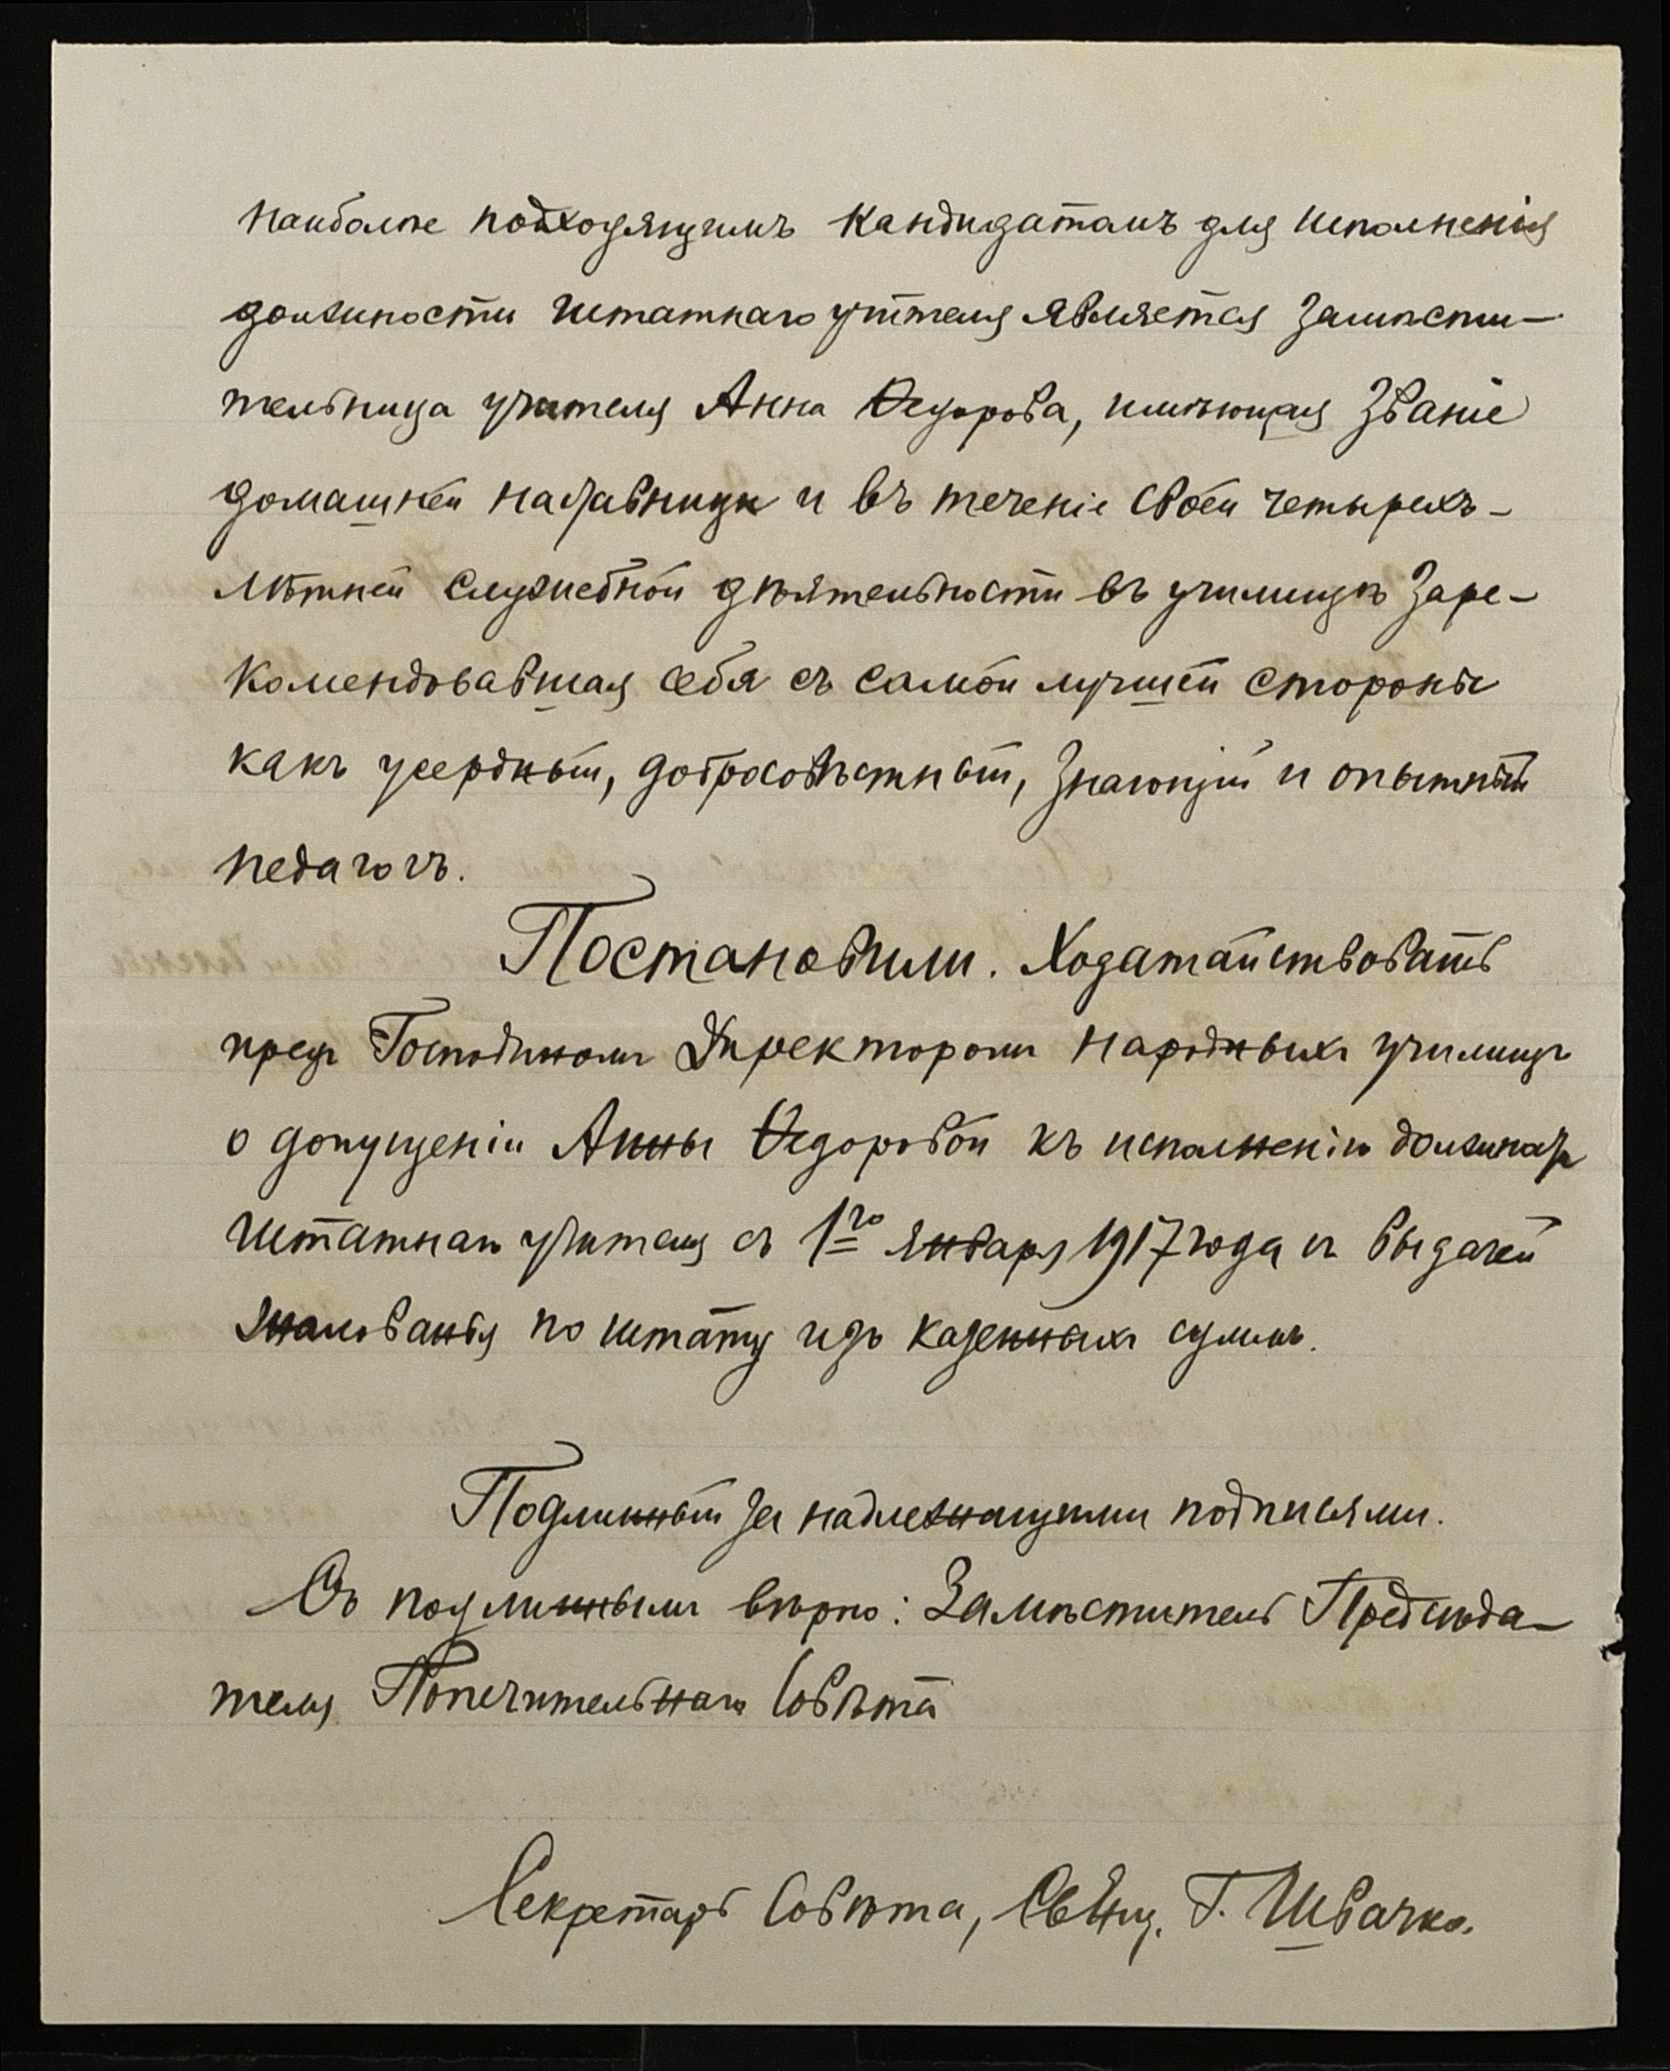 наиболѣе подходящимъ кандидатомъ для исполненія
должности штатнаго учителя является замѣсти-
тельница учителя Анна Ѳедорова, имѣющая званіе
домашней наставницы и въ теченіе своей четырехъ-
лѣтней служебной дѣятельности въ училищѣ заре-
комендовавшая себя съ самой лучшей стороны
какъ усердный, добросовѣстный, знающій и опытный
педагогъ.
Постановили. Ходатайствовать
предъ Господиномъ Директоромъ народныхъ училищъ
о допущеніи Анны Ѳедоровой къ исполненію должности
штатнаго учителя съ 1го января 1917 года съ выдачей
жалованья по штату изъ казенныхъ суммъ.
Подлинный за надлежащими подписями.
Съ подлиннымъ вѣрно: Замѣститель Предсѣда-
теля Попечительнаго Совѣта
Секретарь Совѣта, Свящ. Г. Швачко.